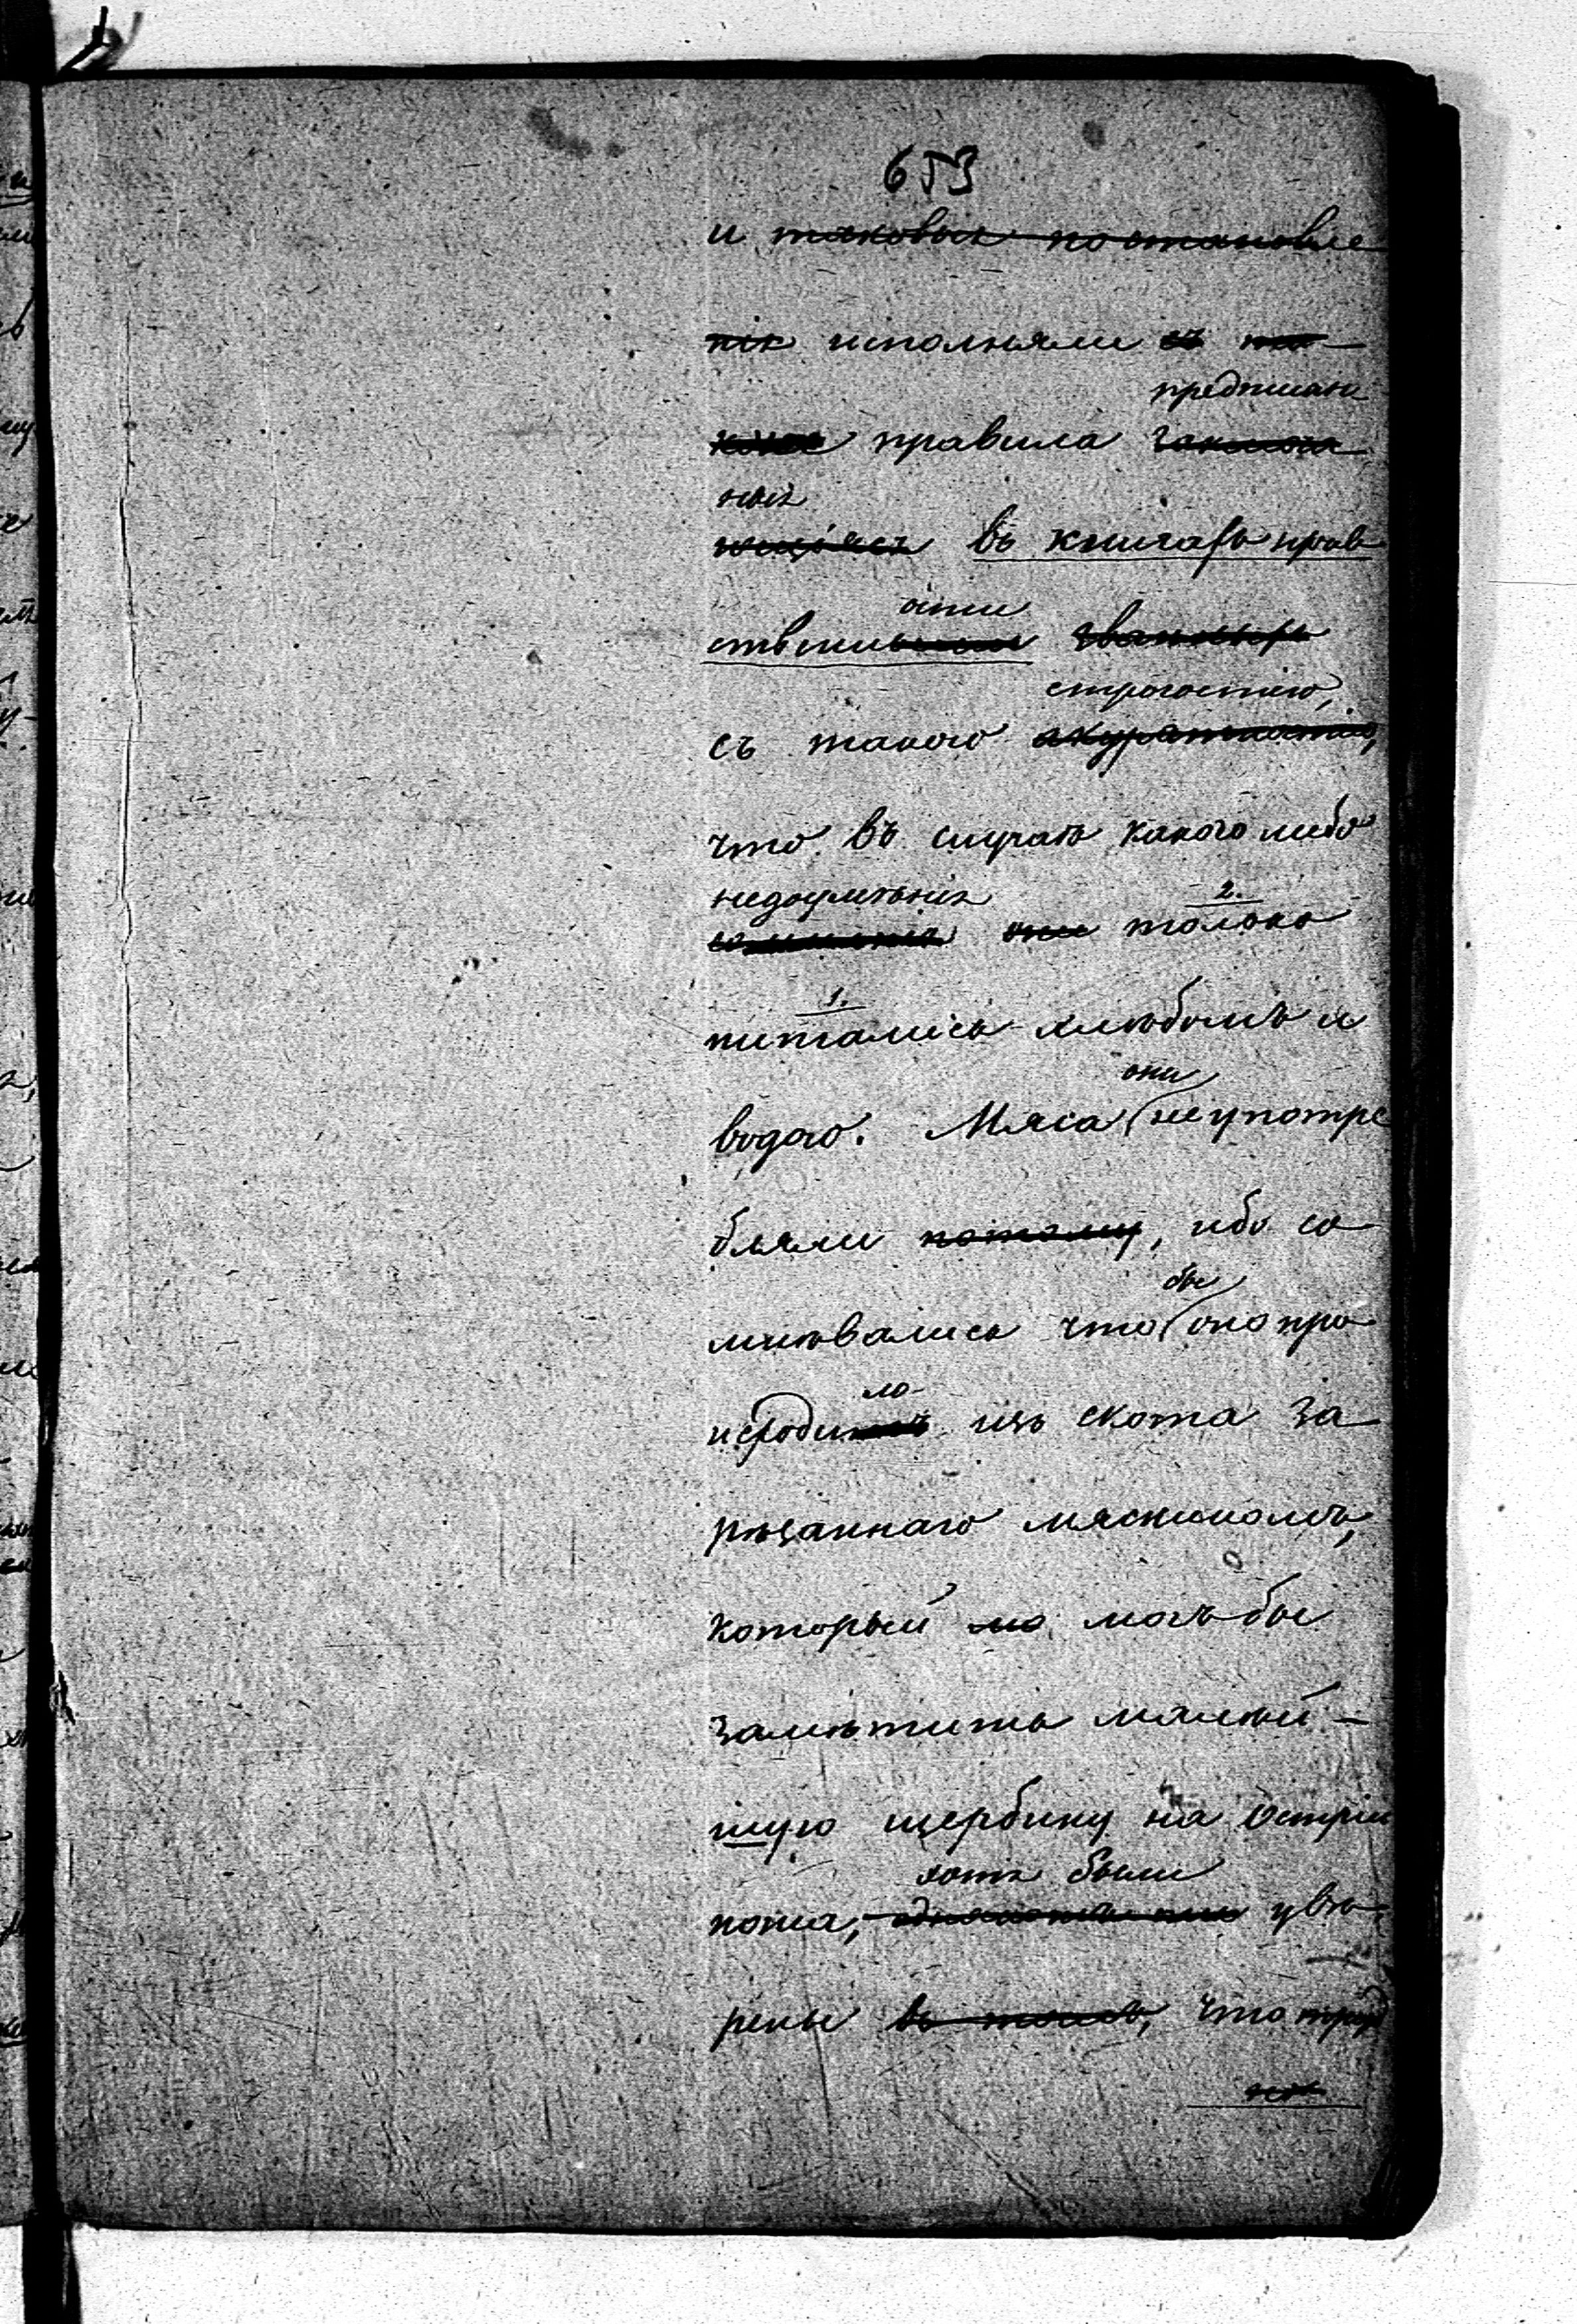 653
и таковыя постановле
нія исполняли съ та-
предписан
кіе правила заключа
ныя
ющіяся въ книгахъ нрав
ости
ственными званныхъ
строгостію,
съ такою акуратностію,
что въ случаѣ какого либо
недоумѣнія 2.
сомнѣнія они только
1.
питались хлѣбомъ и
они
водою. Мяса не употре
бляли потому, ибо со
бы
мнѣвались что оно про
ло
исходитъ изъ скота за
рѣзаннаго мясникомъ,
который мо могъ бы
замѣтить малѣй-
шую щербину на остріи
хотя были
ножа, увѣ
рены въ томъ, что